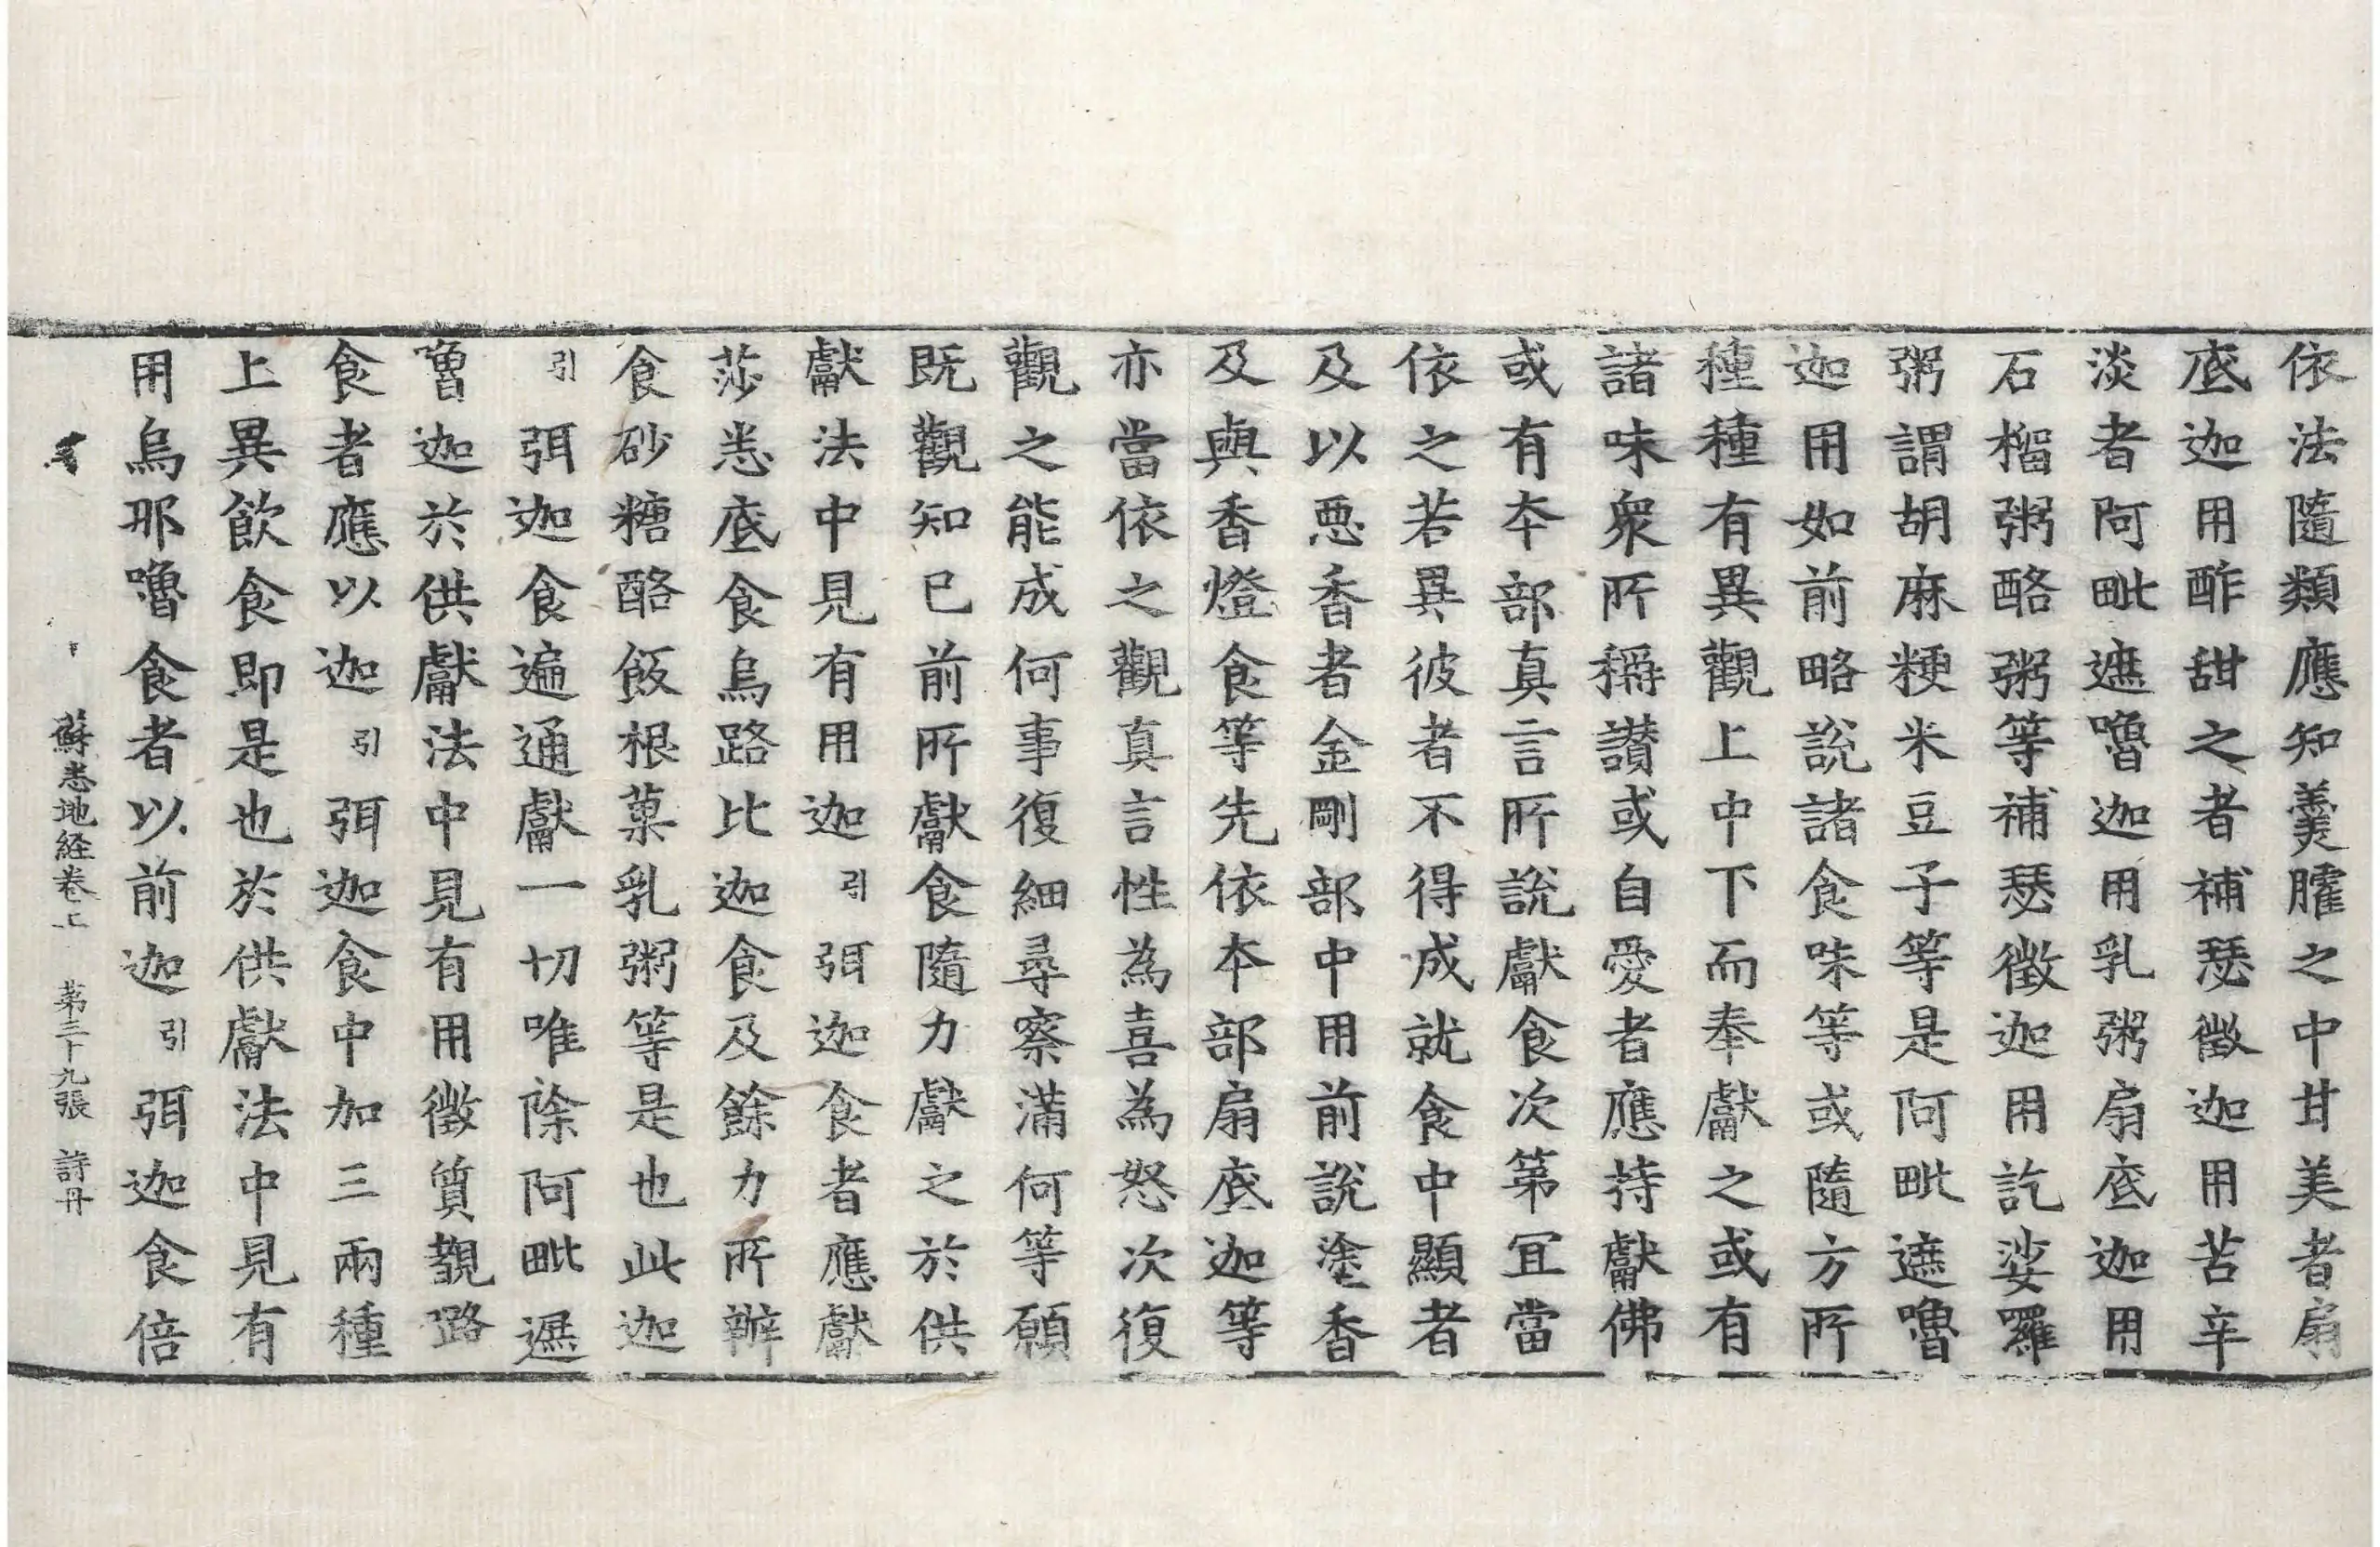 依法隨類應知羹臛之中甘美者扇
底迦用酢甜之者補瑟徵迦用苦辛
淡者阿毗遮嚕迦用乳粥扇底迦用
石榴粥酪粥等補瑟徵迦用訖娑囉
粥謂胡麻粳米豆子等是阿毗遮嚕
迦用如前略說諸食味等或隨方所
種種有異觀上中下而奉獻之或有
諸味衆所稱讚或自愛者應持獻佛
或有本部真言所說獻食次第宜當
依之若異彼者不得成就食中顯者
及以惡香者金剛部中用前說塗香
及與香燈食等先依本部扇底迦等
亦當依之觀真言性為喜為怒次復
觀之能成何事復細尋察滿何等願
既觀知已前所獻食隨力獻之於供
獻法中見有用迦引弭迦食者應獻
莎悉底食烏路比迦食及餘力所辦
食砂糖酪飯根菓乳粥等是也此迦
引弭迦食遍通獻一切唯除阿毗遮
嚕迦於供獻法中見有用徵質覩路
食者應以迦引弭迦食中加三兩種
上異飲食即是也於供獻法中見有
用烏那嚕食者以前迦引弭迦食倍
蘇悉地経卷上 第三十九張 詩丹